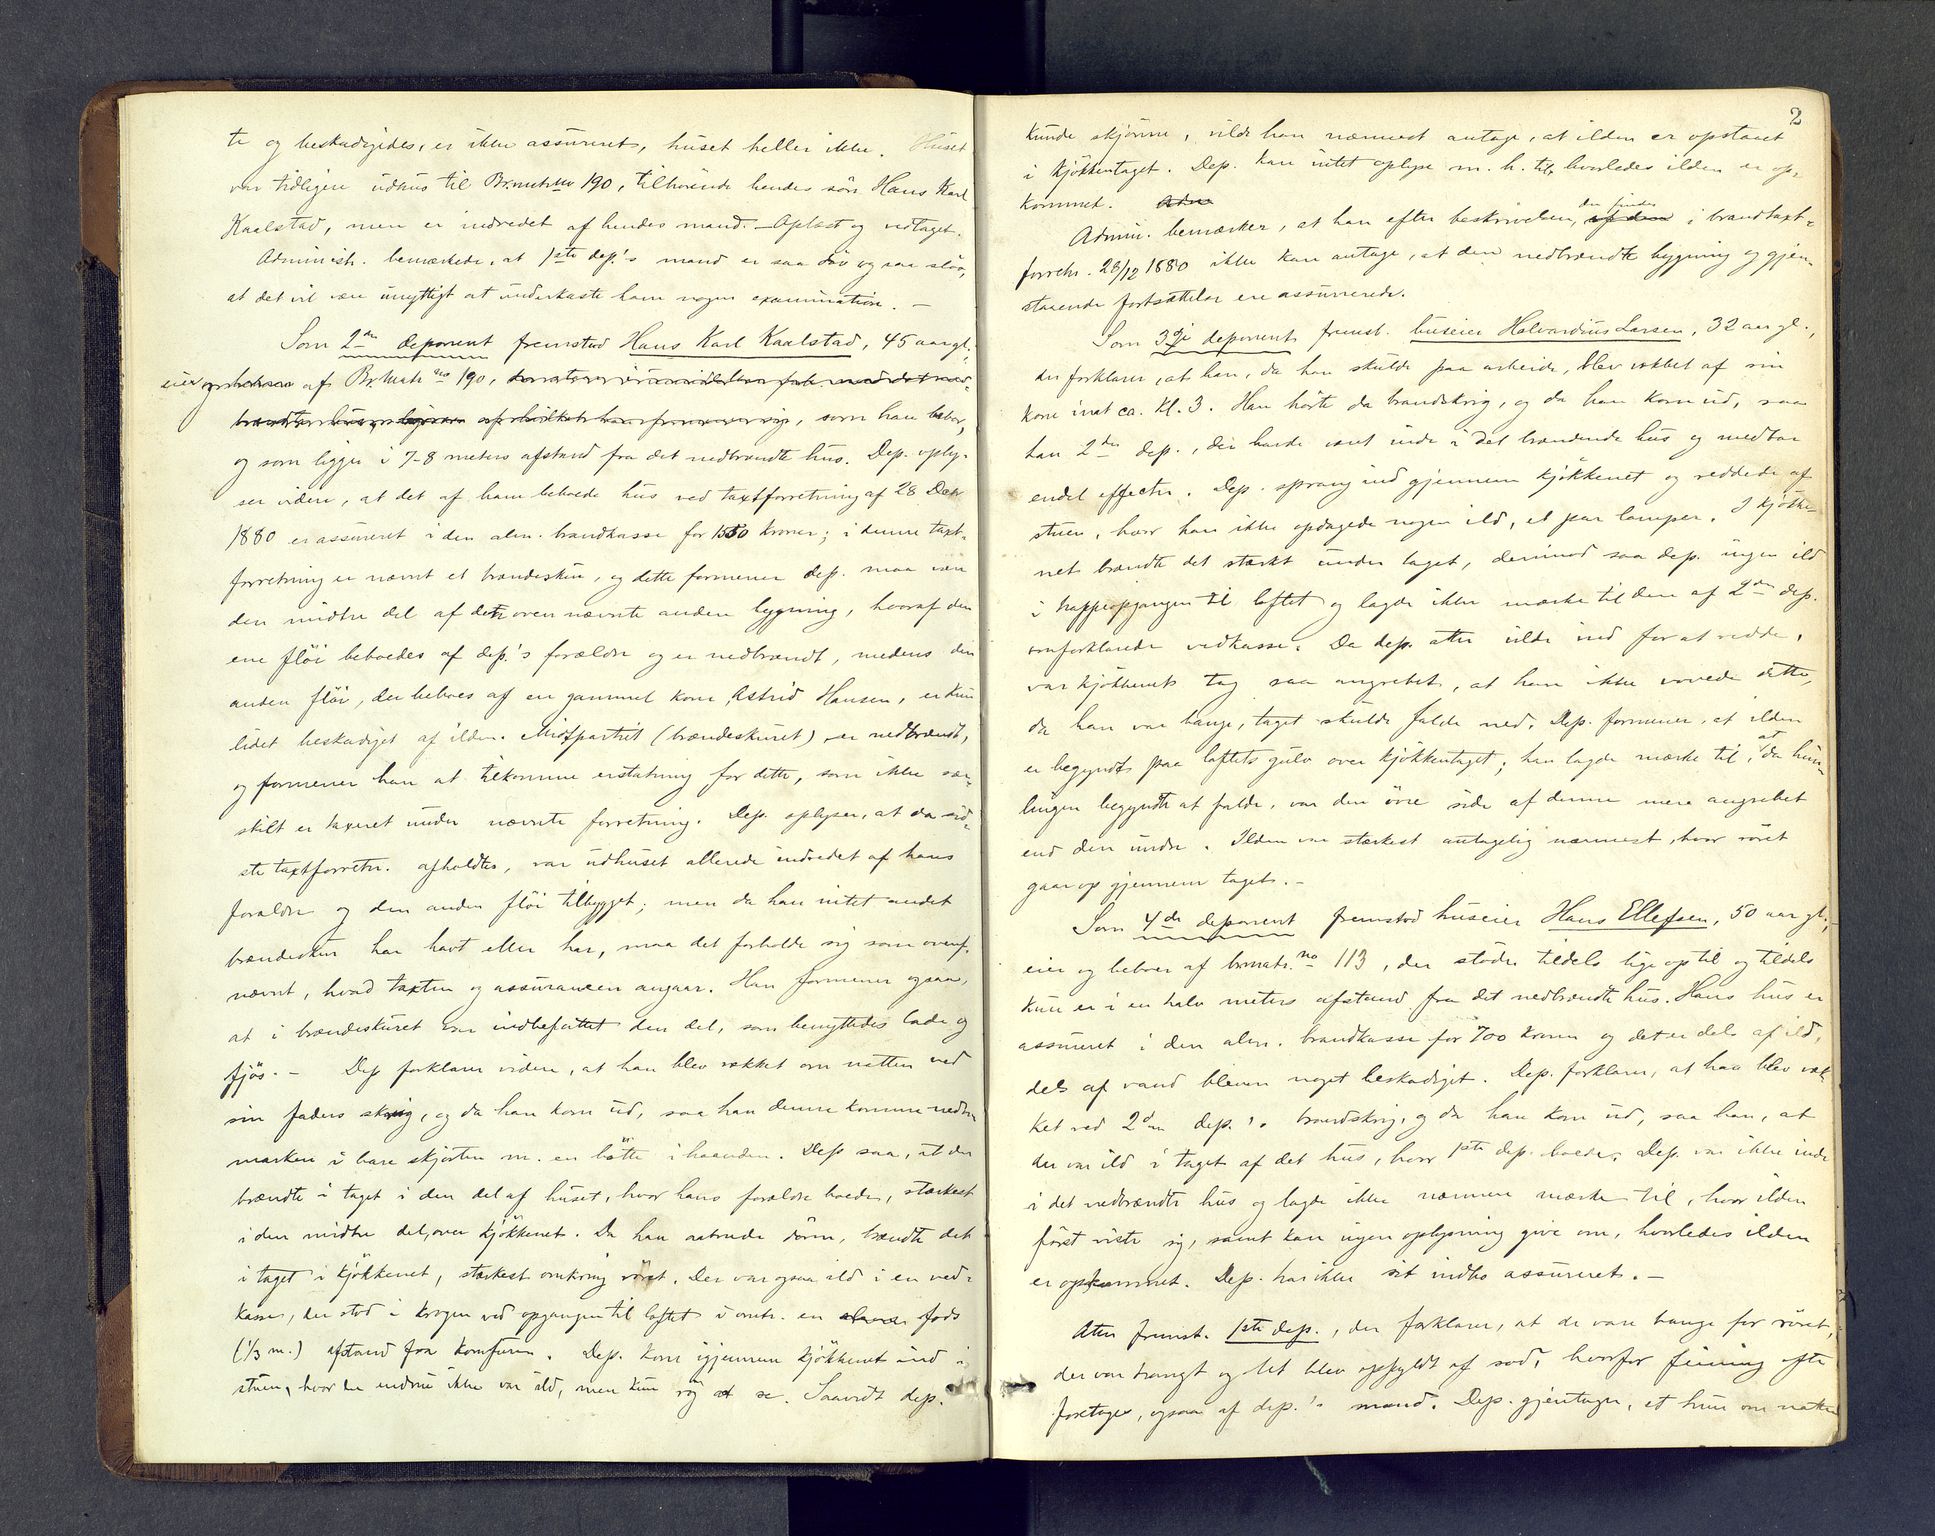 te og beskadigedes, er ikke assureret, huset heller ikke. Huset
var tidligere udhus til Br.matr no 190, tilhørende hendes søn Hans Karl
Kaalstad, men er indredet af hendes mand. – Oplæst og vedtaget.
Administr. bemærkede, at 1ste dep.'s mand er saa döv og saa slöv,
at det vil være unyttigt at underkaste ham nogen examination. –
Som 2den deponent fremstod Hans Karl Kaalstad, 45 aar gl.,
eier af Br.matr no 190, som han bebor,
og som ligger i 7-8 meters afstand fra det nedbrændte hus. Dep. oply-
ser videre, at det af ham beboede hus ved taxtforretning af 28 Decbr
1880 er assureret i den alm. brandkasse for kroner; i denne taxt-
forretning er nævnt et brændeskur, og dette formener dep. maa være
den midtre del af den oven nævnte anden bygning, hvoraf den
ene flöi beboedes af dep.'s forældre og er nedbrændt, medens den
anden flöi, der beboes af en gammel kone, Astrid Hansen, er kun
lidet beskadiget af ilden. Midtpartiet (brændeskuret) er nedbrændt,
og formener han at tilkomme erstatning for dette, som ikke sær-
skilt er taxeret under nævnte forretning. Dep. oplyser, at da sid-
ste taxtforretn. afholdtes, var udhuset allerede indredet af hans
forældre og den anden flöi tilbygget; men da han intet andet
brændeskur har havt eller har, maa det forholde sig som ovenf.
nævnt, hvad taxten og assurancen angaar. Han formener ogsaa,
at i brændeskuret var indbefattet den del, som benyttedes lade og
fjös. – Dep forklarer videre, at han blev vækket om natten ved
sin faders skrig, og da han kom ud, saa han denne komme nedom
marken i bare skjorten m. en bötte i haanden. Dep saa, at det
brændte i taget i den del af huset, hvor hans forældre boede, stærkest
i den midtre del, over kjökkenet. Da han aabnede dören, brændte det
i taget i kjökkenet, stærkest omkring röret. Der var ogsaa ild i en ved-
kasse, der stod i krogen ved opgangen til loftet i omtr. en fods
(1/3 m.) afstand fra komfuren. Dep. kom igjennem kjökkenet ind i
stuen, hvor der endnu ikke var ild, men kun rög at se. Saavidt dep.
2
kunde skjönne, vilde han nærmest antage, at ilden er opstaaet
i kjökkentaget. Dep. kan intet oplyse m. h. til hvorledes ilden er op-
kommet. Adm
Admin. bemærker, at han efter beskrivelsen, der findes i brandtaxt-
forretn. 28/12 1880 ikke kan antage, at den nedbrændte bygning og gjen-
staaende fortsættelse ere assurerede.
Som 3die deponent fremst. huseier Halvardius Larsen, 32 aar gl.,
der forklarer, at han, da han skulde paa arbeide, blev vækket af sin
kone inat ca. kl. 3. Han hörte da brandskrig, og da han kom ud, saa
han 2den dep., der havde været inde i det brændende hus og medtog
endel effecter. Dep. sprang ind gjennem kjökkenet og reddede af
stuen, hvor han ikke opdagede nogen ild, et par lamper. I kjökke-
net brændte det stærkt under taget, derimod saa dep. ingen ild
i trappeopgangen til loftet og lagde ikke mærke til den af 2den dep.
omforklarede vedkasse. Da dep. atter vilde ind for at redde,
var kjökkenets tag saa angrebet, at han ikke vovede dette,
da han var bange, taget skulde falde ned. Dep. formener, at ilden
er begyndt paa loftets gulv over kjökkentaget; han lagde mærke til, at da him-
lingen begyndte at falde, var den övre side af denne mere angrebet
end den undre. Ilden var stærkest antagelig nærmest, hvor röret
gaar op gjennem taget. –
Som 4de deponent fremstod huseier Hans Ellefsen, 50 aar gl.,
eier og beboer af br.matr. no 113, der stöder tildels lige op til og tildels
kun er i en halv meters afstand fra det nedbrændte hus. Hans hus er
assureret i den alm. brandkasse for 700 kroner og det er dels af ild,
dels af vand bleven noget beskadiget. Dep. forklarer, at han blev væk-
ket ved 2den dep.'s brandskrig, og da han kom ud, saa han, at
der var ild i taget af det hus, hvor 1ste dep. boede. Dep. var ikke inde
i det nedbrændte hus og lagde ikke nærmere mærke til, hvor ilden
först viste sig, samt kan ingen oplysning give om, hvorledes ilden
er opkommet. Dep. har ikke sit indbo assureret. –
Atter fremst. 1ste dep., der forklarer, at de vare bange for röret,
der var trangt og let blev opfyldt af sod, hvorfor feining ofte
foretoges, ogsaa af dep.'s mand. Dep. gjentager, at hun om natten